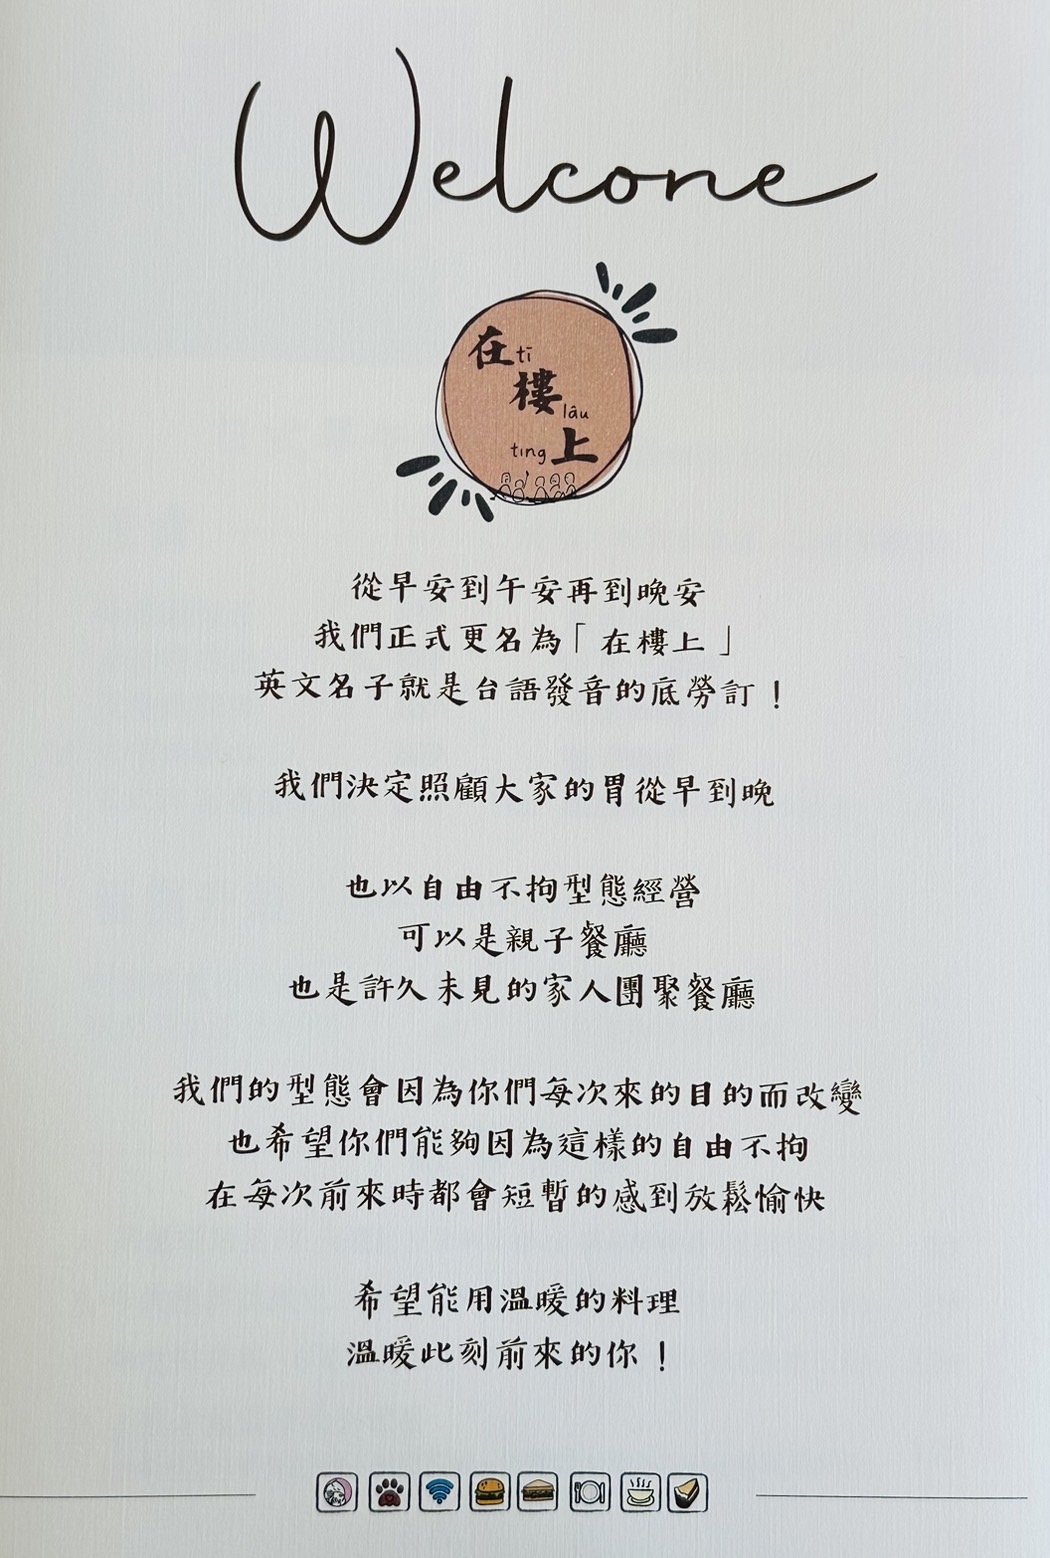 Welcone
在 tī
樓 lâu
ting 上
從早安到午安再到晚安
我們正式更名為「在樓上」
英文名子就是台語發音的底勞訂！
我們決定照顧大家的胃從早到晚
也以自由不拘型態經營
可以是親子餐廳
也是許久未見的家人團聚餐廳
我們的型態會因為你們每次來的目的而改變
也希望你們能夠因為這樣的自由不拘
在每次前來時都會短暫的感到放鬆愉快
希望能用溫暖的料理
溫暖此刻前來的你！